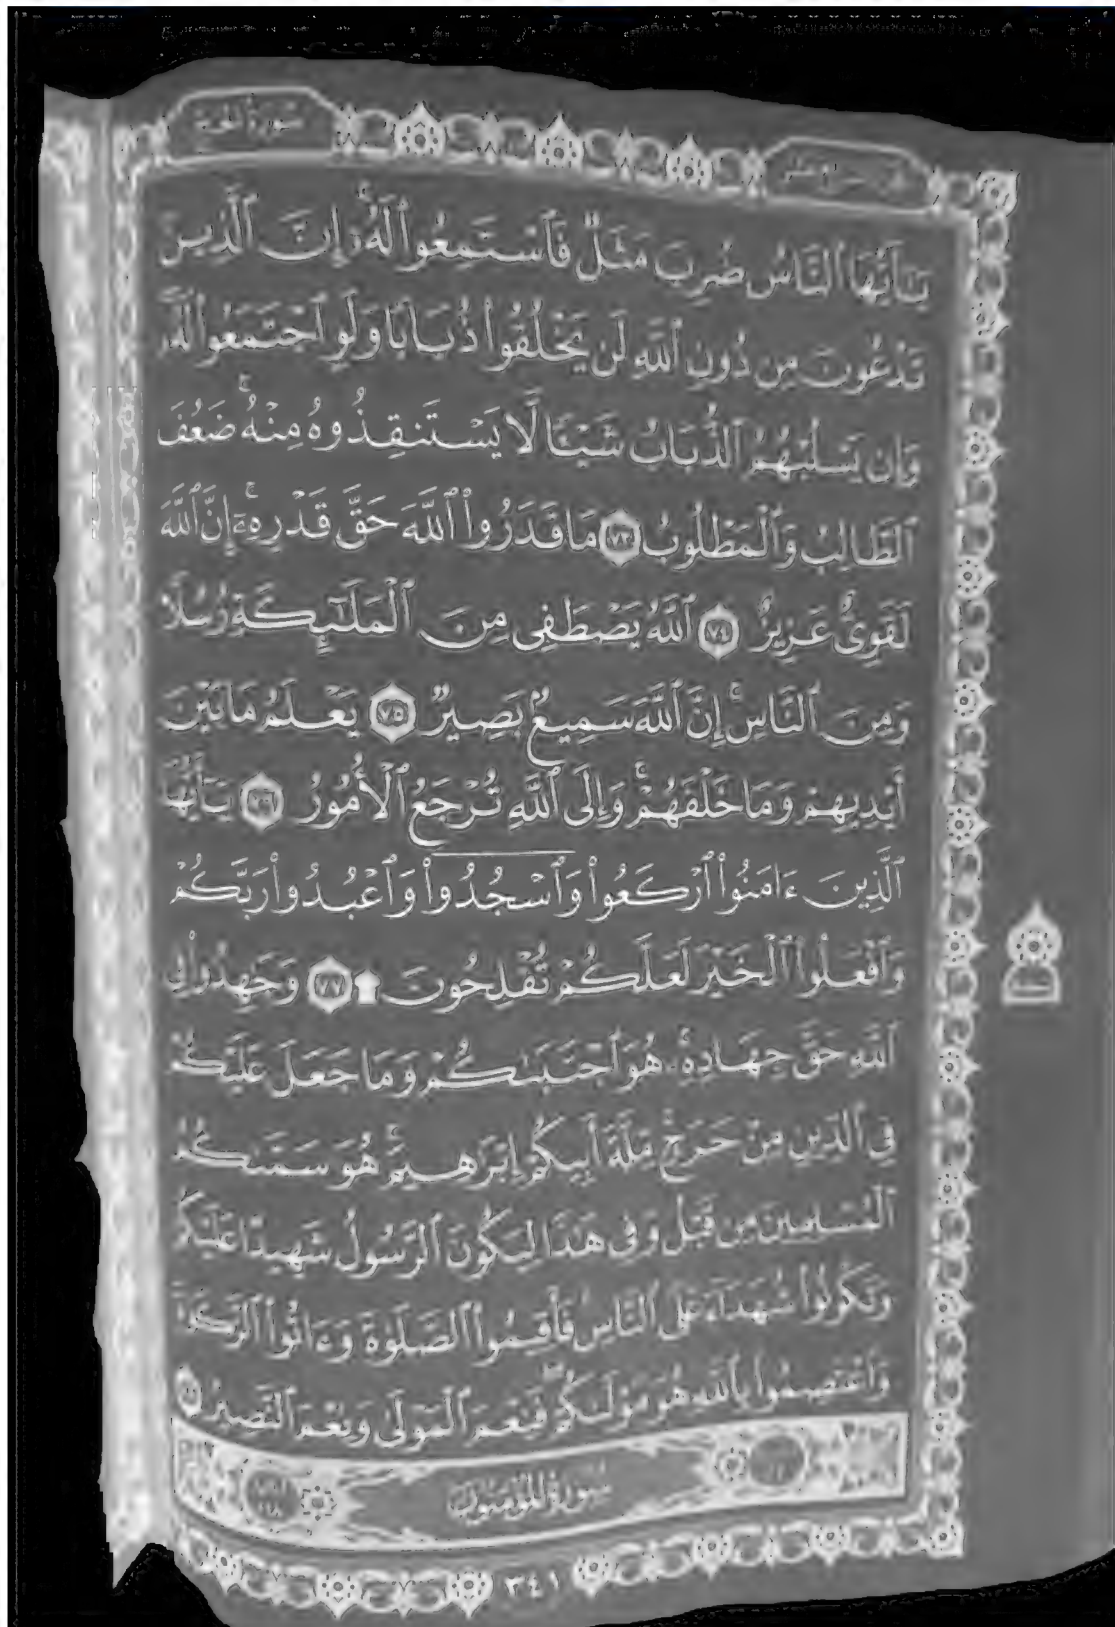 سورة الحج
يَٰٓأَيُّهَا ٱلنَّاسُ ضُرِبَ مَثَلٌ فَٱسْتَمِعُوا۟ لَهُۥٓ ۚ إِنَّ ٱلَّذِينَ
تَدْعُونَ مِن دُونِ ٱللَّهِ لَن يَخْلُقُوا۟ ذُبَابًا وَلَوِ ٱجْتَمَعُوا۟ لَهُۥ ۖ
وَإِن يَسْلُبْهُمُ ٱلذُّبَابُ شَيْـًٔا لَّا يَسْتَنقِذُوهُ مِنْهُ ۚ ضَعُفَ
ٱلطَّالِبُ وَٱلْمَطْلُوبُ ٧٣ مَا قَدَرُوا۟ ٱللَّهَ حَقَّ قَدْرِهِۦٓ ۗ إِنَّ ٱللَّهَ
لَقَوِىٌّ عَزِيزٌ ٧٤ ٱللَّهُ يَصْطَفِى مِنَ ٱلْمَلَٰٓئِكَةِ رُسُلًا
وَمِنَ ٱلنَّاسِ ۚ إِنَّ ٱللَّهَ سَمِيعٌۢ بَصِيرٌ ٧٥ يَعْلَمُ مَا بَيْنَ
أَيْدِيهِمْ وَمَا خَلْفَهُمْ ۗ وَإِلَى ٱللَّهِ تُرْجَعُ ٱلْأُمُورُ ٧٦ يَٰٓأَيُّهَا
ٱلَّذِينَ ءَامَنُوا۟ ٱرْكَعُوا۟ وَٱسْجُدُوا۟ وَٱعْبُدُوا۟ رَبَّكُمْ
وَٱفْعَلُوا۟ ٱلْخَيْرَ لَعَلَّكُمْ تُفْلِحُونَ ۩ ٧٧ وَجَٰهِدُوا۟ فِى
ٱللَّهِ حَقَّ جِهَادِهِۦ ۚ هُوَ ٱجْتَبَىٰكُمْ وَمَا جَعَلَ عَلَيْكُمْ
فِى ٱلدِّينِ مِنْ حَرَجٍ ۚ مِّلَّةَ أَبِيكُمْ إِبْرَٰهِيمَ ۚ هُوَ سَمَّىٰكُمُ
ٱلْمُسْلِمِينَ مِن قَبْلُ وَفِى هَٰذَا لِيَكُونَ ٱلرَّسُولُ شَهِيدًا عَلَيْكُمْ
وَتَكُونُوا۟ شُهَدَآءَ عَلَى ٱلنَّاسِ ۚ فَأَقِيمُوا۟ ٱلصَّلَوٰةَ وَءَاتُوا۟ ٱلزَّكَوٰةَ
وَٱعْتَصِمُوا۟ بِٱللَّهِ هُوَ مَوْلَىٰكُمْ ۖ فَنِعْمَ ٱلْمَوْلَىٰ وَنِعْمَ ٱلنَّصِيرُ
سُورَةُ المُؤْمِنُونَ
٣٤١